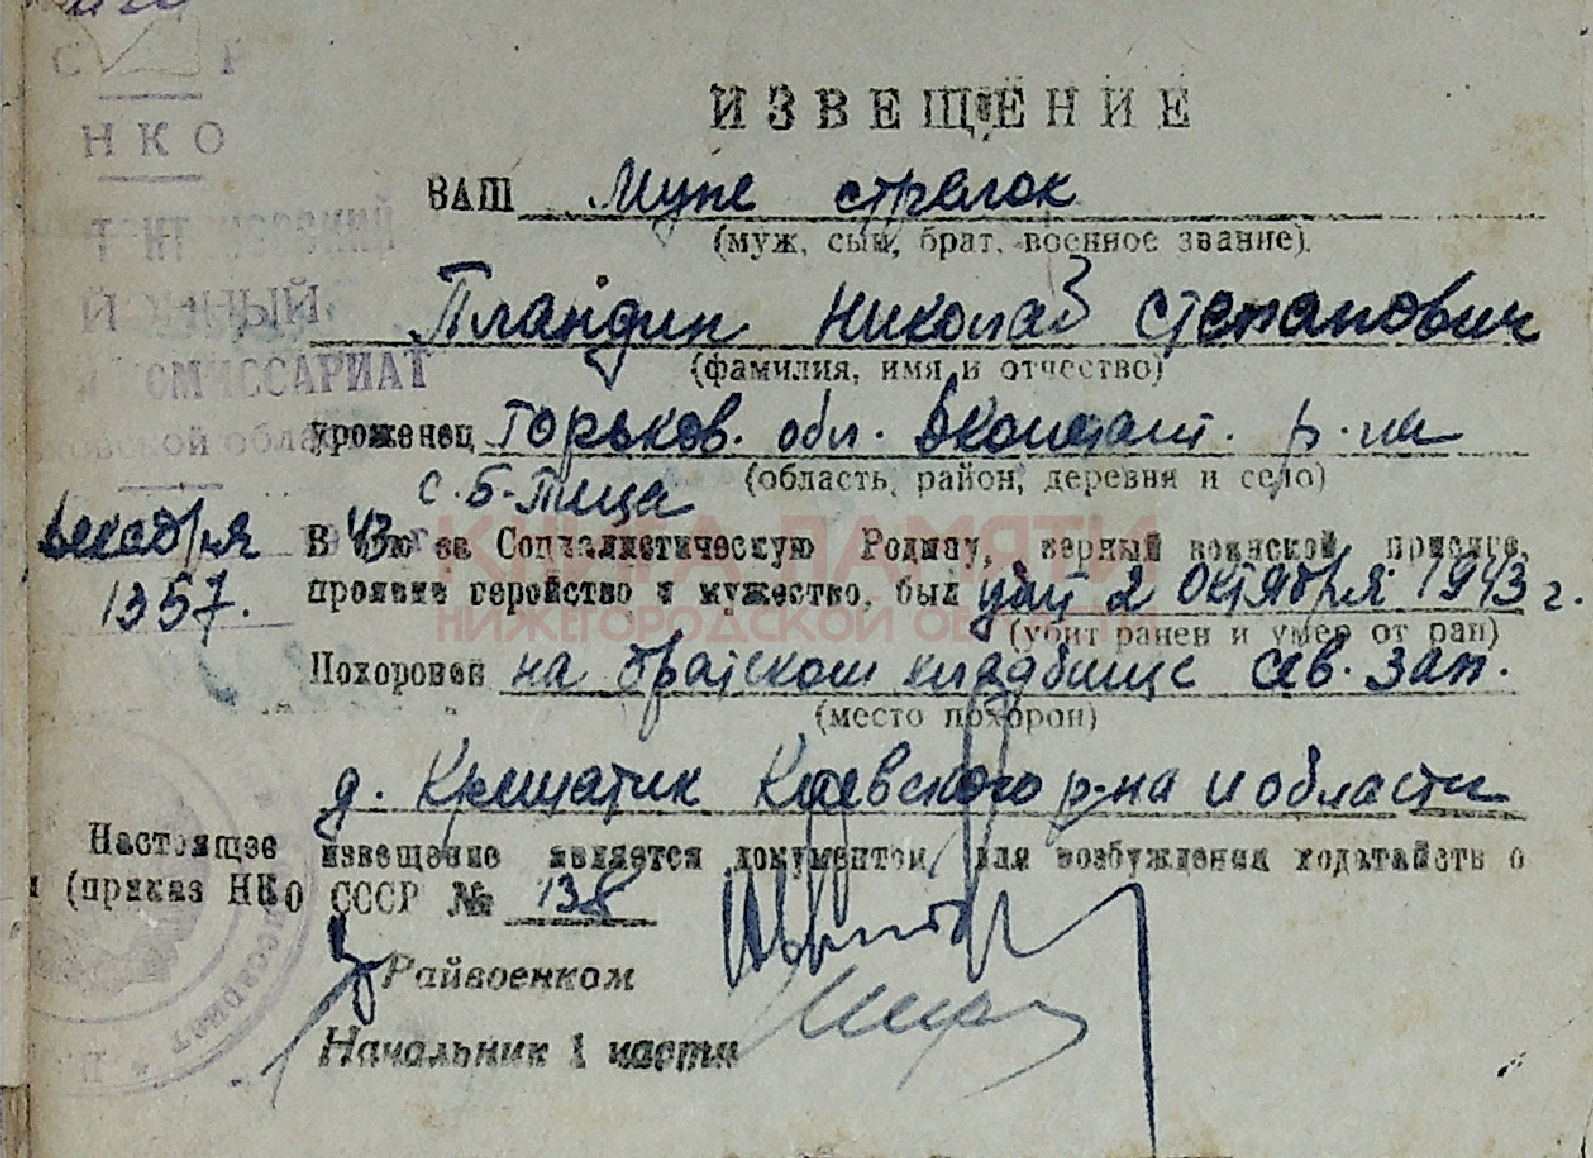 НКО
ИЗВЕЩЕНИЕ
ВАШ Муже стрелок
(муж, сын, брат, военное звание)
Пландин Николай Степанович
КОМИССАРИАТ
(фамилия, имя и отчество)
уроженец Горьков. обл. Вконстант. р-на
(область, район, деревня и село)
с. Б-Пица
КНИГА ПАМЯТИ
НИЖЕГОРОДСКОЙ ОБЛАСТИ
декабря 43 г.
1357.
В бою за Социалистическую Родину, верный воинской присяге,
проявив геройство и мужество, был убит 2 октября 1943 г.
(убит ранен и умер от ран)
Похоронен на братском кладбище сев. зап.
(место похорон)
д. Крещатик Киевского р-на и области
Настоящее извещение является документом для возбуждения ходатайств о
и (приказ НКО СССР № 138
Райвоенком
Начальник 1 части